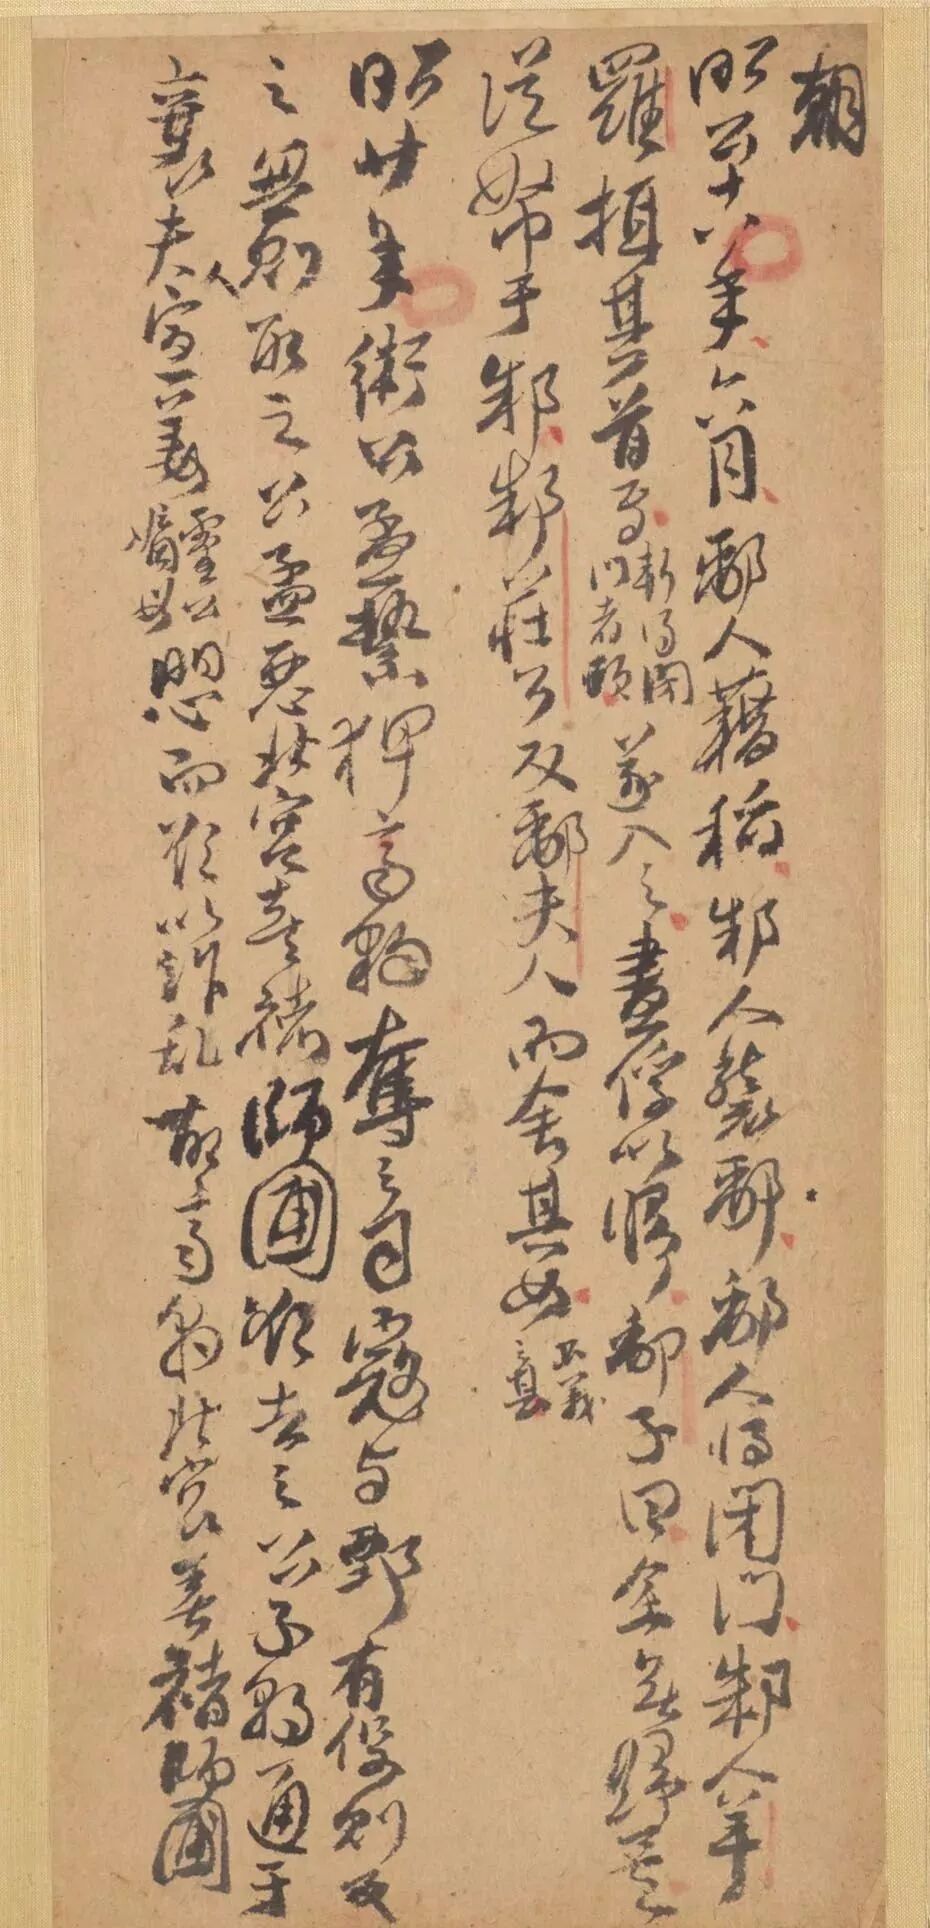 朝
昭公十八年六月鄅人藉稻邾人襲鄅鄅人將閉門邾人羊
羅攝其首焉斬得閉門者頭遂入之盡俘以歸鄅子曰余無歸矣
從帑于邾邾莊公反鄅夫人而舍其女不義
昭廿年衛公孟縶狎齊豹奪之司寇与鄄有役則反
之無則取之公孟惡北宮喜褚師圃欲去之公子朝通于
襄夫人宣姜靈公嫡母懼而欲以作乱故齊豹北宮喜褚師圃